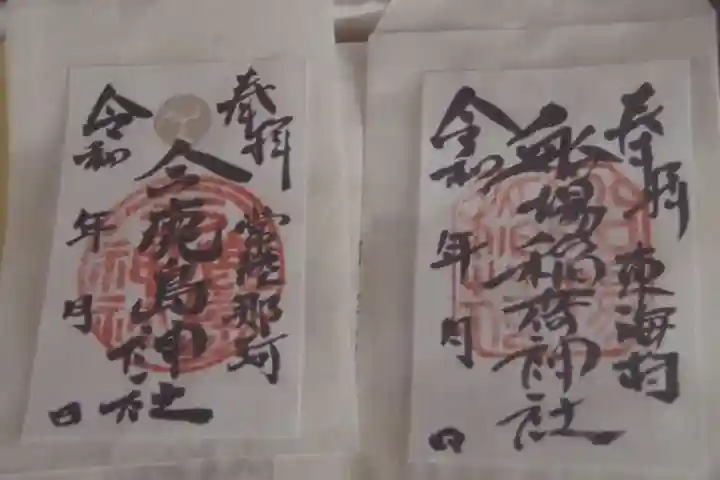 奉拝 常陸那珂
鹿島神社
令和 年 月 日
奉拝 東海村
船場稲荷神社
令和 年 月 日